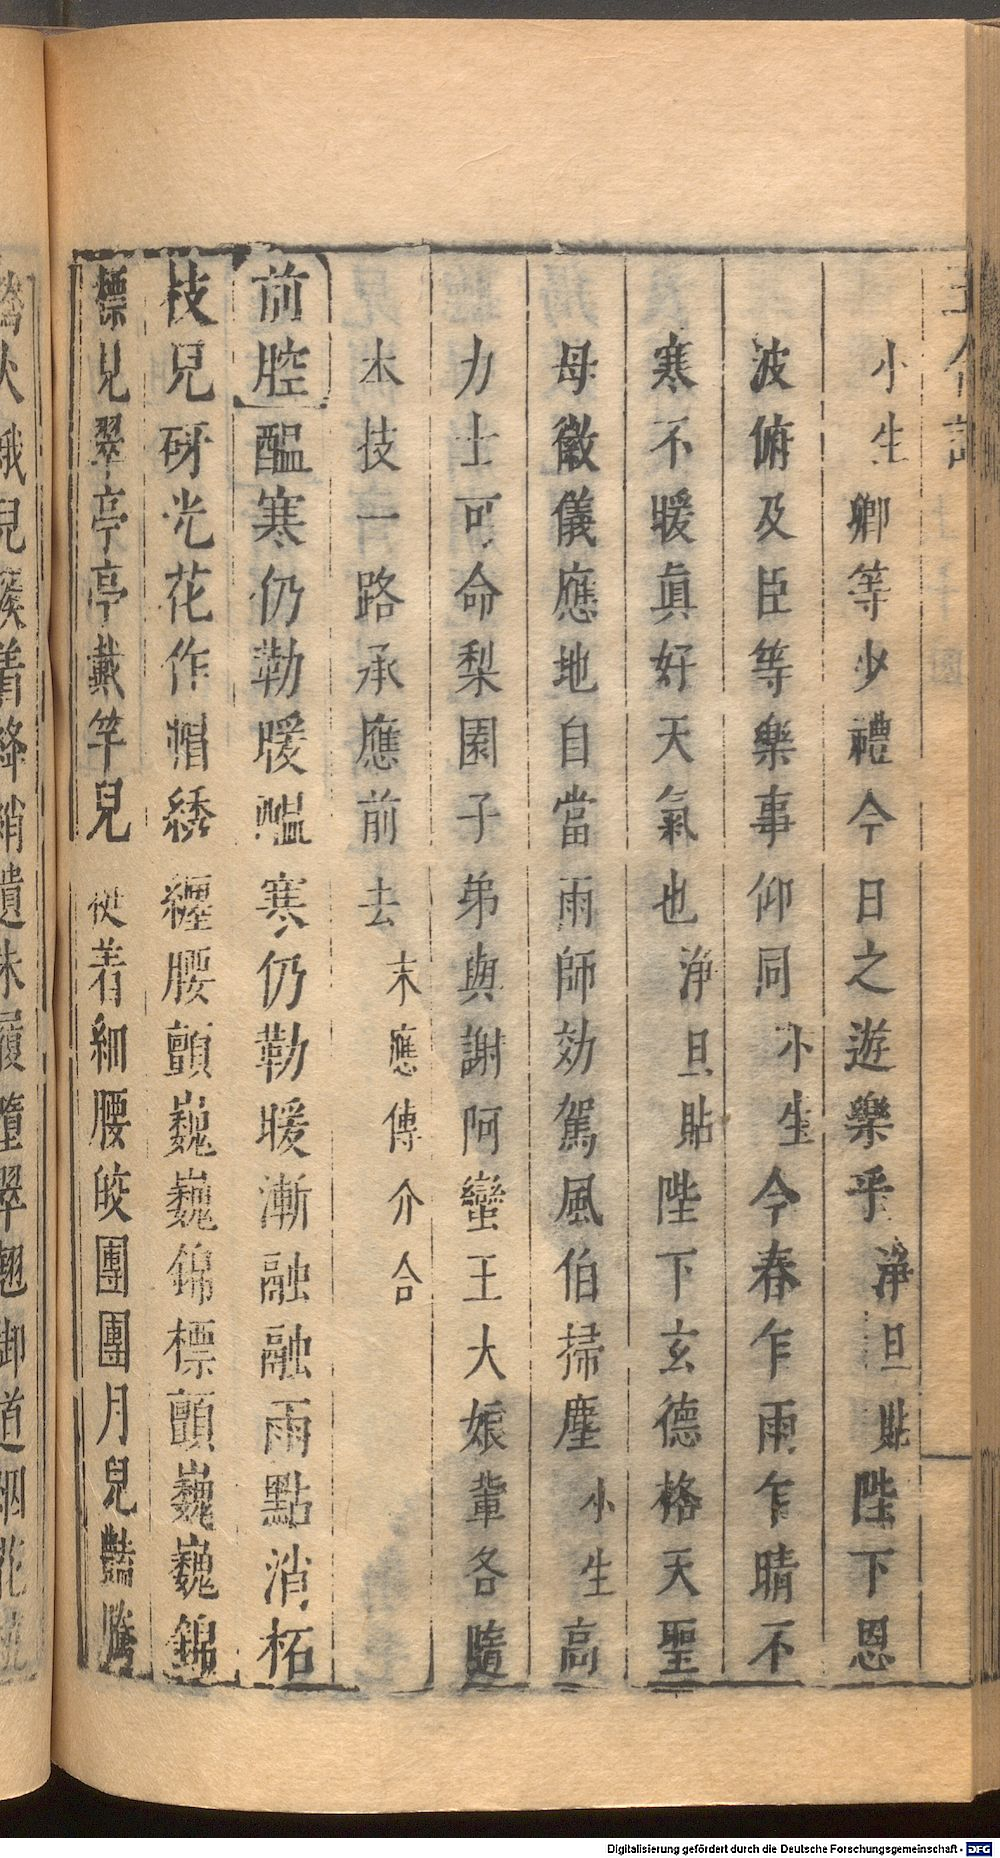 小生 卿等少禮今日之遊樂乎 淨旦貼 陛下恩
波俯及臣等樂事仰同 小生 今春乍雨乍晴不
寒不暖真好天氣也 淨旦貼 陛下玄德格天聖
母徽儀應地自當雨師効駕風伯掃塵 小生 高
力士可命梨園子弟與謝阿蠻王大娘輩各隨
本技一路承應前去 末應傳介合
前腔 醖寒仍勒暖醖寒仍勒暖漸融融雨點消柘
枝兒砑光花作帽綉纏腰顫巍巍錦標顫巍巍錦
標兒翠亭亭戴竿兒 從着細腰皎團團月兒豔騰
Digitalisierung gefördert durch die Deutsche Forschungsgemeinschaft - DFG